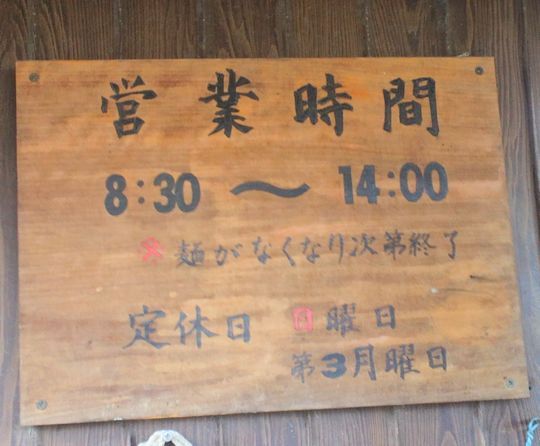 営業時間
8:30 〜 14:00
※麺がなくなり次第終了
定休日 日曜日
第3月曜日